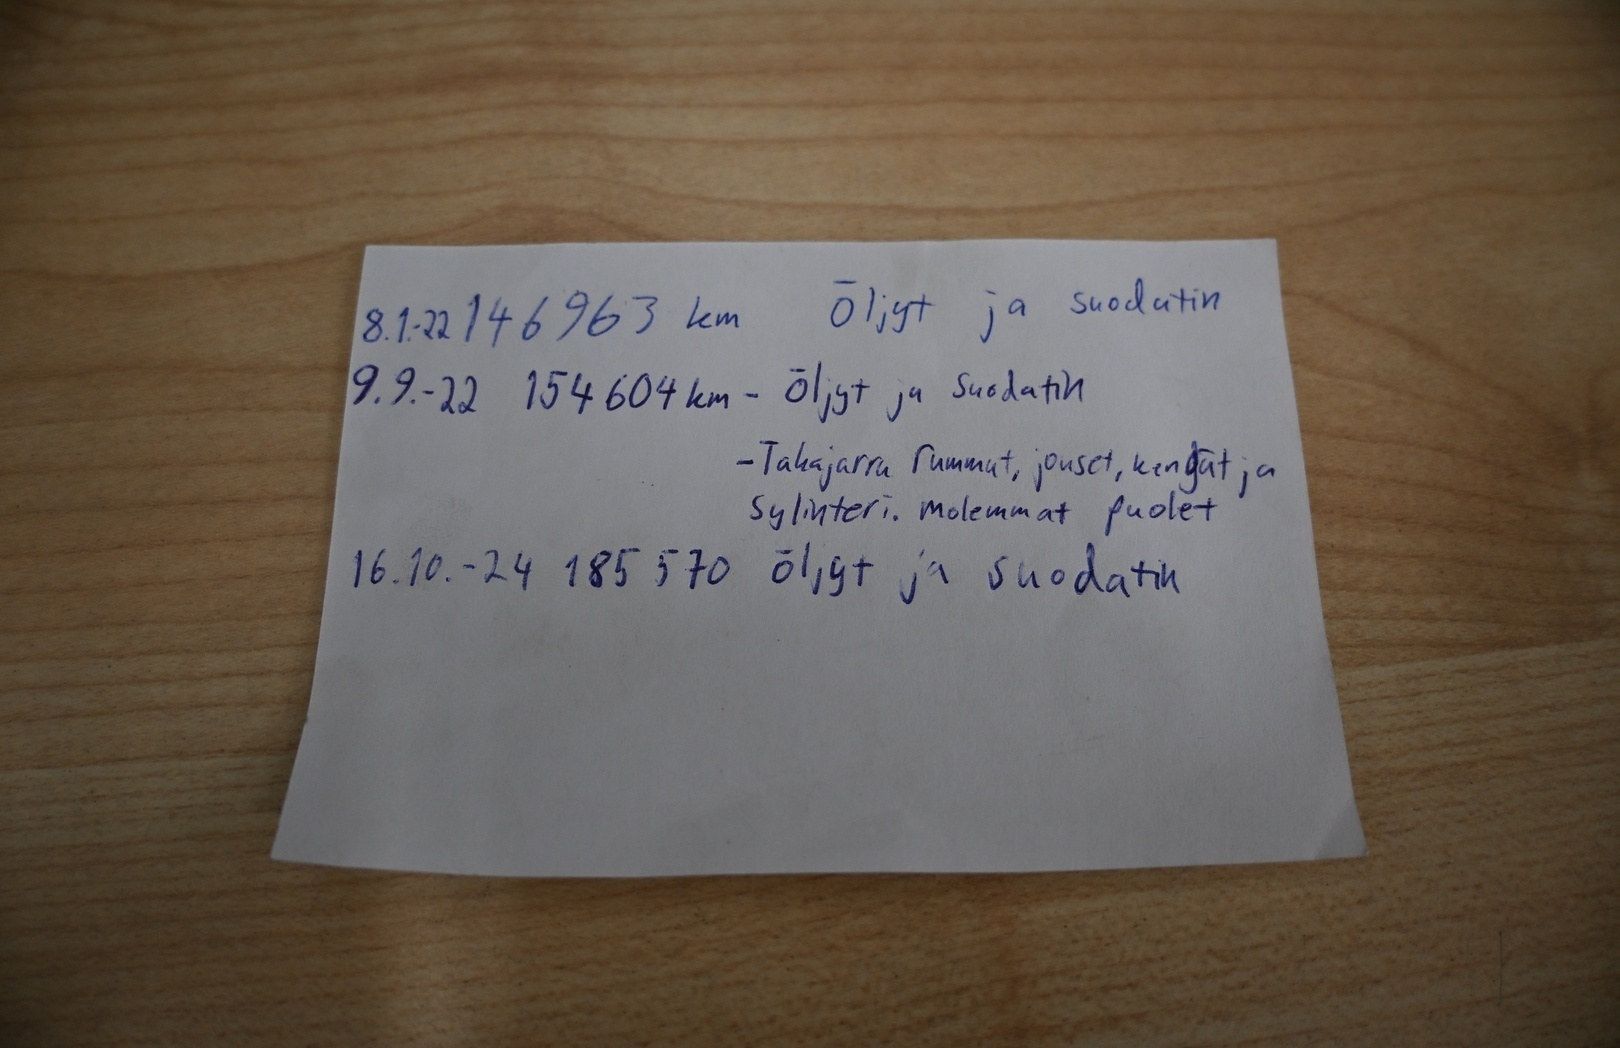 8.1.-22 146963 km Öljyt ja suodatin
9.9.-22 154604 km - Öljyt ja suodatin
-Takajarru rummut, jouset, kengät ja
sylinteri. molemmat puolet
16.10.-24 185 570 öljyt ja suodatin